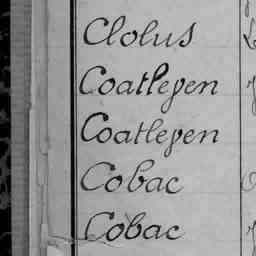 Clolus
Coatleven
Coatleven
Cobac
Cobac